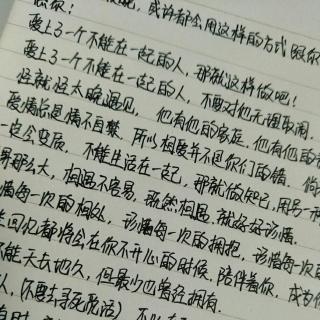 或许都会用这样的方式
爱上了一个不能在一起的人,那就这样做吧!
爱上了一个不能在一起的人,不要对他无理取闹.
怪就怪太晚遇见,他有他的家庭.他有他的
爱情总是情不自禁.所以相爱并不是你们的错.
一定会变质.不能生活在一起,那就做知己,用另一
界那么大,相遇不容易,既然相遇.就好好珍惜.
惜每一次的相处,珍惜每一次的拥抱,珍惜每一次
回忆都将会在你不开心的时候.陪伴着你.成为
不能天长地久,但最少也曾经拥有.
人,不要去寻死觅活)